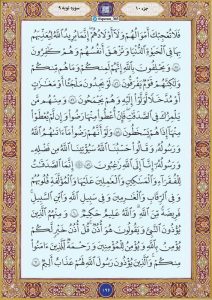 جزء ۱۰
سوره توبه ۹
فَلَا تُعْجِبْكَ أَمْوَٰلُهُمْ وَلَآ أَوْلَٰدُهُمْ إِنَّمَا يُرِيدُ ٱللَّهُ لِيُعَذِّبَهُم
بِهَا فِى ٱلْحَيَوٰةِ ٱلدُّنْيَا وَتَزْهَقَ أَنفُسُهُمْ وَهُمْ كَٰفِرُونَ
وَيَحْلِفُونَ بِٱللَّهِ إِنَّهُمْ لَمِنكُمْ وَمَا هُم مِّنكُمْ
وَلَٰكِنَّهُمْ قَوْمٌ يَفْرَقُونَ لَوْ يَجِدُونَ مَلْجَـًٔا أَوْ مَغَٰرَٰتٍ
أَوْ مُدَّخَلًا لَّوَلَّوْا۟ إِلَيْهِ وَهُمْ يَجْمَحُونَ وَمِنْهُم مَّن
يَلْمِزُكَ فِى ٱلصَّدَقَٰتِ فَإِنْ أُعْطُوا۟ مِنْهَا رَضُوا۟ وَإِن لَّمْ يُعْطَوْا۟
مِنْهَآ إِذَا هُمْ يَسْخَطُونَ وَلَوْ أَنَّهُمْ رَضُوا۟ مَآ ءَاتَىٰهُمُ ٱللَّهُ
وَرَسُولُهُۥ وَقَالُوا۟ حَسْبُنَا ٱللَّهُ سَيُؤْتِينَا ٱللَّهُ مِن فَضْلِهِۦ
وَرَسُولُهُۥٓ إِنَّآ إِلَى ٱللَّهِ رَٰغِبُونَ إِنَّمَا ٱلصَّدَقَٰتُ
لِلْفُقَرَآءِ وَٱلْمَسَٰكِينِ وَٱلْعَٰمِلِينَ عَلَيْهَا وَٱلْمُؤَلَّفَةِ قُلُوبُهُمْ
وَفِى ٱلرِّقَابِ وَٱلْغَٰرِمِينَ وَفِى سَبِيلِ ٱللَّهِ وَٱبْنِ ٱلسَّبِيلِ
فَرِيضَةً مِّنَ ٱللَّهِ وَٱللَّهُ عَلِيمٌ حَكِيمٌ وَمِنْهُمُ ٱلَّذِينَ
يُؤْذُونَ ٱلنَّبِىَّ وَيَقُولُونَ هُوَ أُذُنٌ قُلْ أُذُنُ خَيْرٍ لَّكُمْ
يُؤْمِنُ بِٱللَّهِ وَيُؤْمِنُ لِلْمُؤْمِنِينَ وَرَحْمَةٌ لِّلَّذِينَ ءَامَنُوا۟
مِنكُمْ وَٱلَّذِينَ يُؤْذُونَ رَسُولَ ٱللَّهِ لَهُمْ عَذَابٌ أَلِيمٌ
۱۹۶